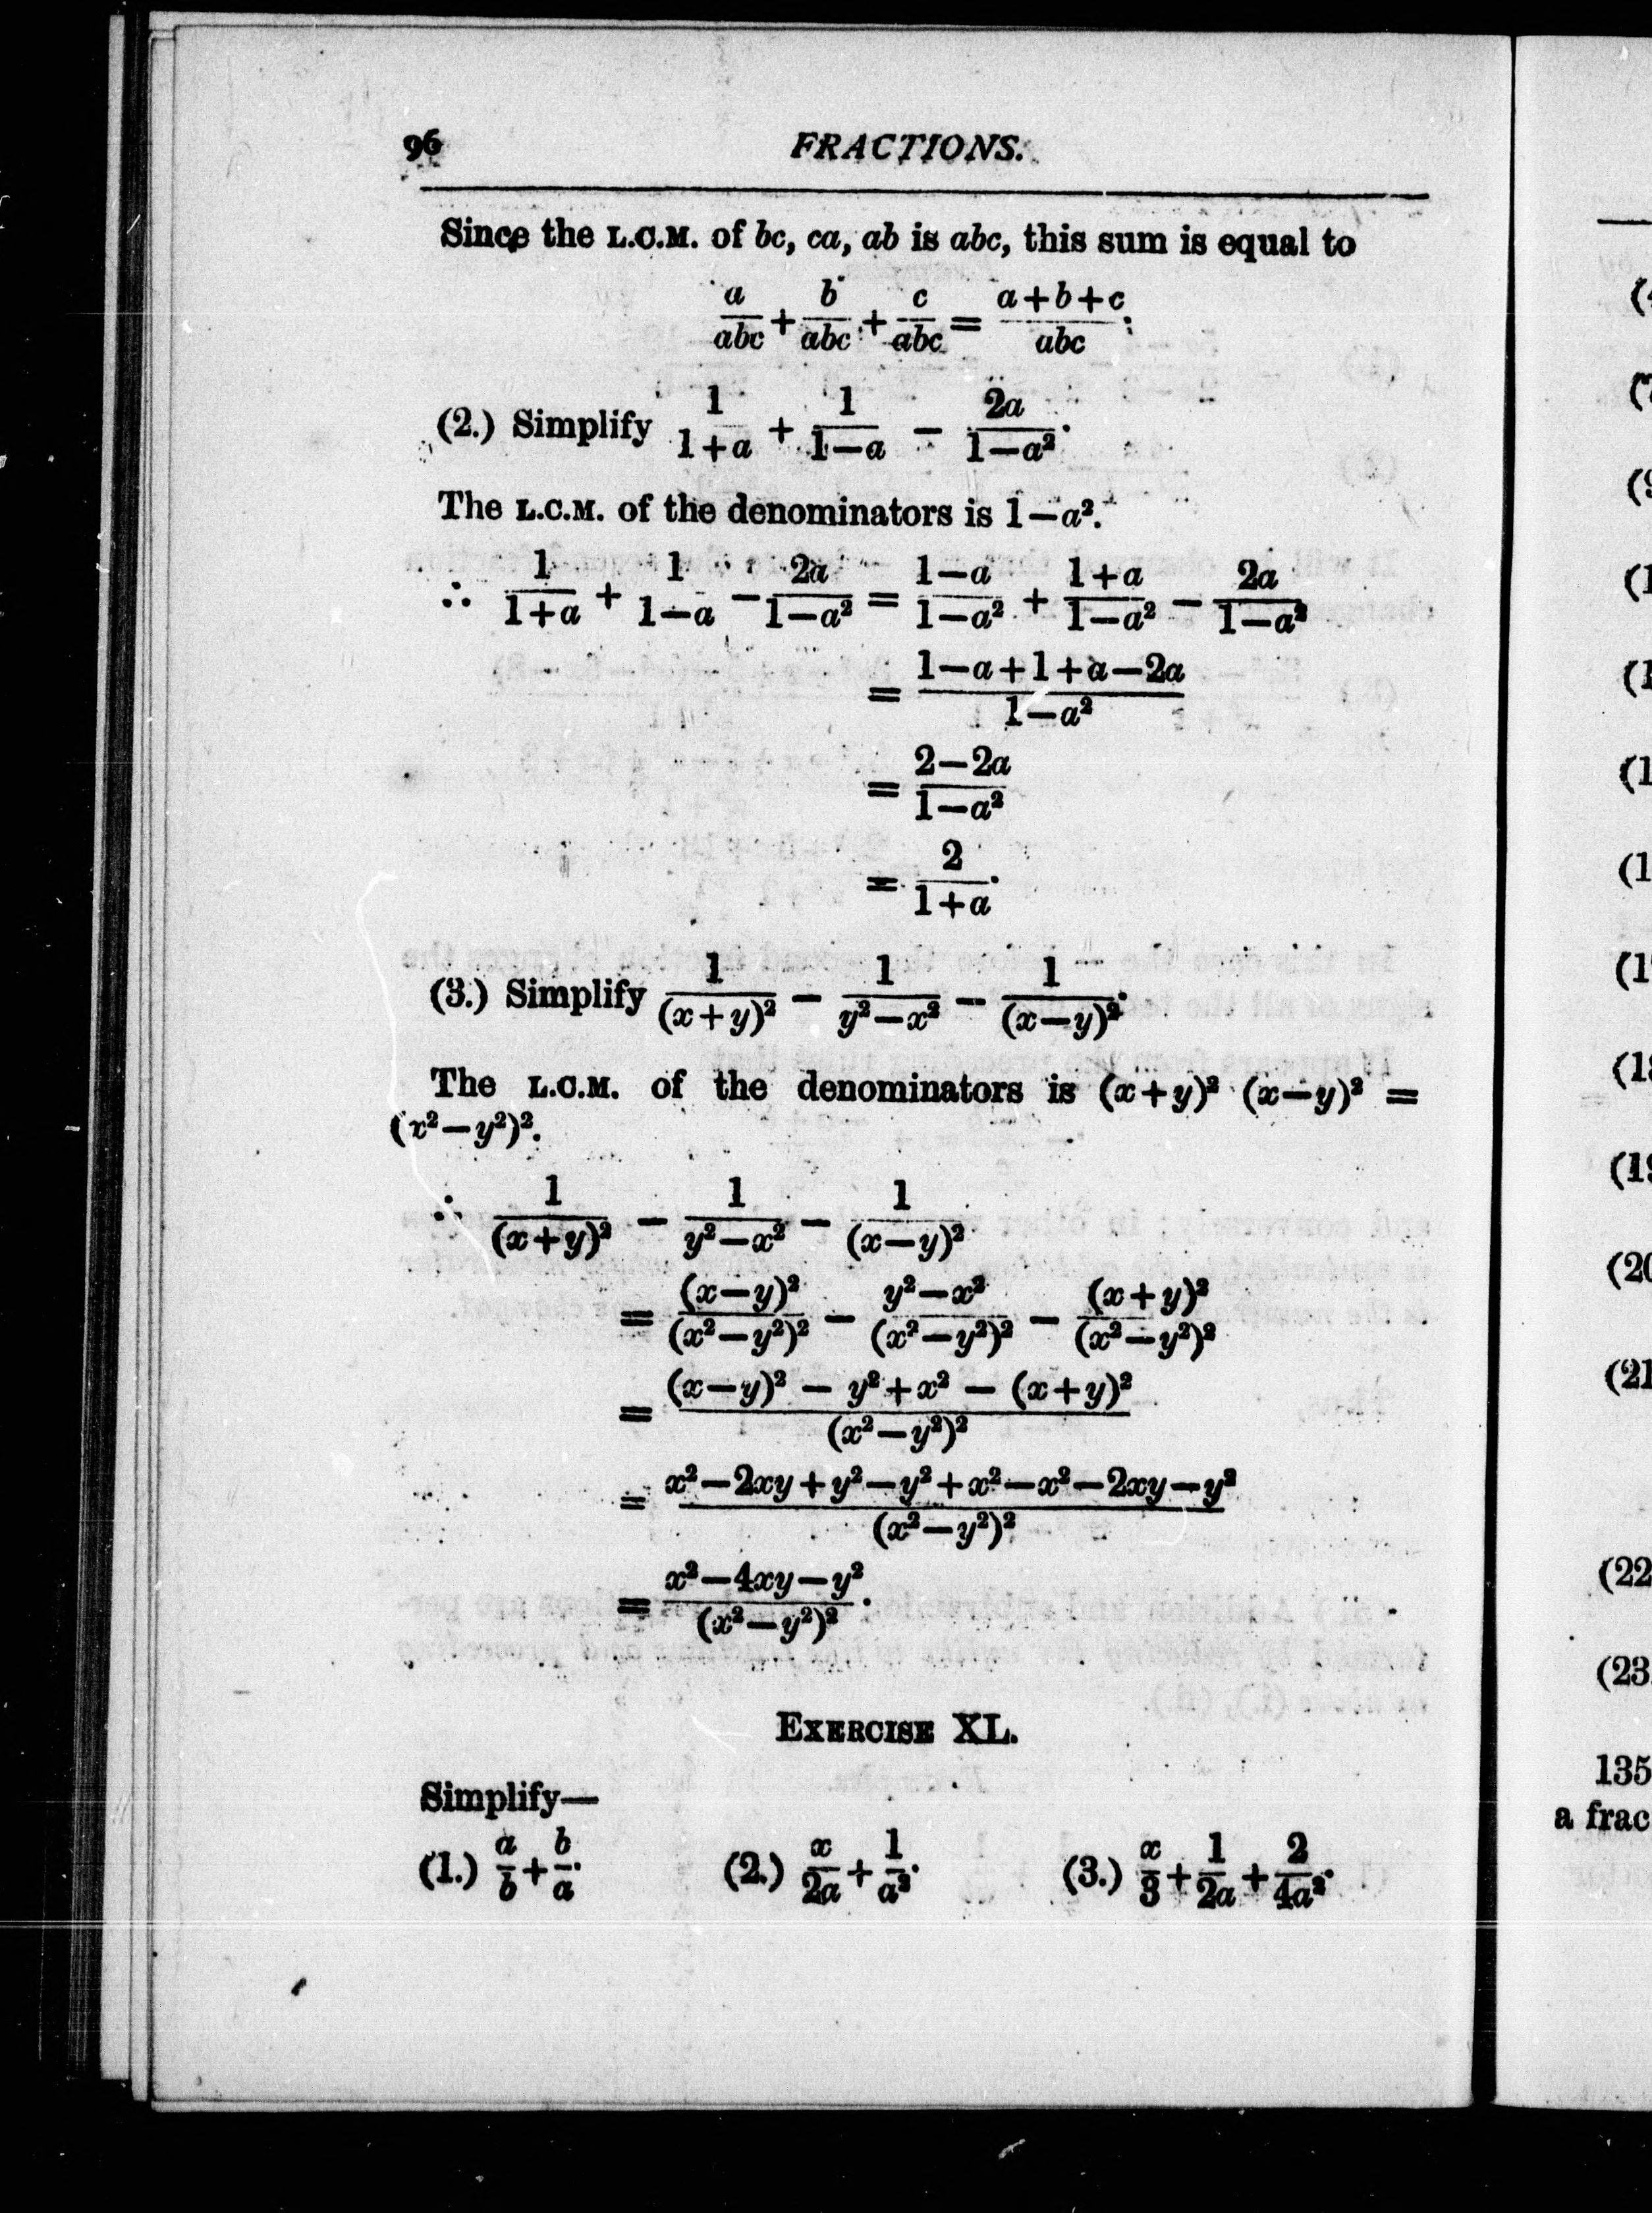 96 FRACTIONS.
Since the L.C.M. of bc, ca, ab is abc, this sum is equal to
a/abc + b/abc + c/abc = (a+b+c)/abc.
(2.) Simplify 1/(1+a) + 1/(1−a) − 2a/(1−a²).
The L.C.M. of the denominators is 1−a².
∴ 1/(1+a) + 1/(1−a) − 2a/(1−a²) = (1−a)/(1−a²) + (1+a)/(1−a²) − 2a/(1−a²)
= (1−a+1+a−2a)/(1−a²)
= (2−2a)/(1−a²)
= 2/(1+a).
(3.) Simplify 1/(x+y)² − 1/(y²−x²) − 1/(x−y)².
The L.C.M. of the denominators is (x+y)² (x−y)² =
(x²−y²)².
∴ 1/(x+y)² − 1/(y²−x²) − 1/(x−y)²
= (x−y)²/(x²−y²)² − (y²−x²)/(x²−y²)² − (x+y)²/(x²−y²)²
= ((x−y)² − y²+x² − (x+y)²)/(x²−y²)²
= (x²−2xy+y²−y²+x²−x²−2xy−y²)/(x²−y²)²
= (x²−4xy−y²)/(x²−y²)².
EXERCISE XL.
Simplify—
(1.) a/b + b/a. (2.) x/2a + 1/a². (3.) x/3 + 1/2a + 2/4a².
(20
(21
(22
(23
135
a frac